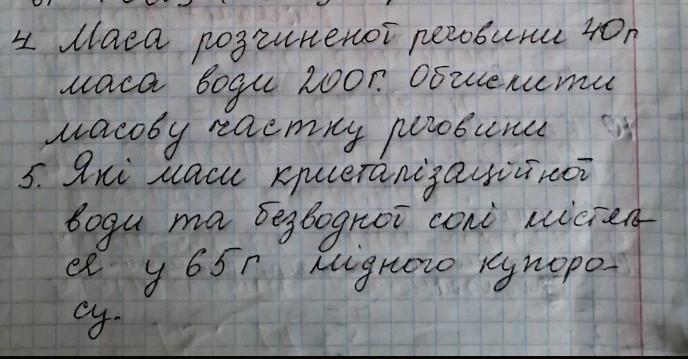 4. Маса розчиненої речовини 40г
маса води 200г. Обчислити
масову частку речовини
5. Які маси кристалізаційної
води та безводної солі містять-
ся у 65г мідного купоро-
су.